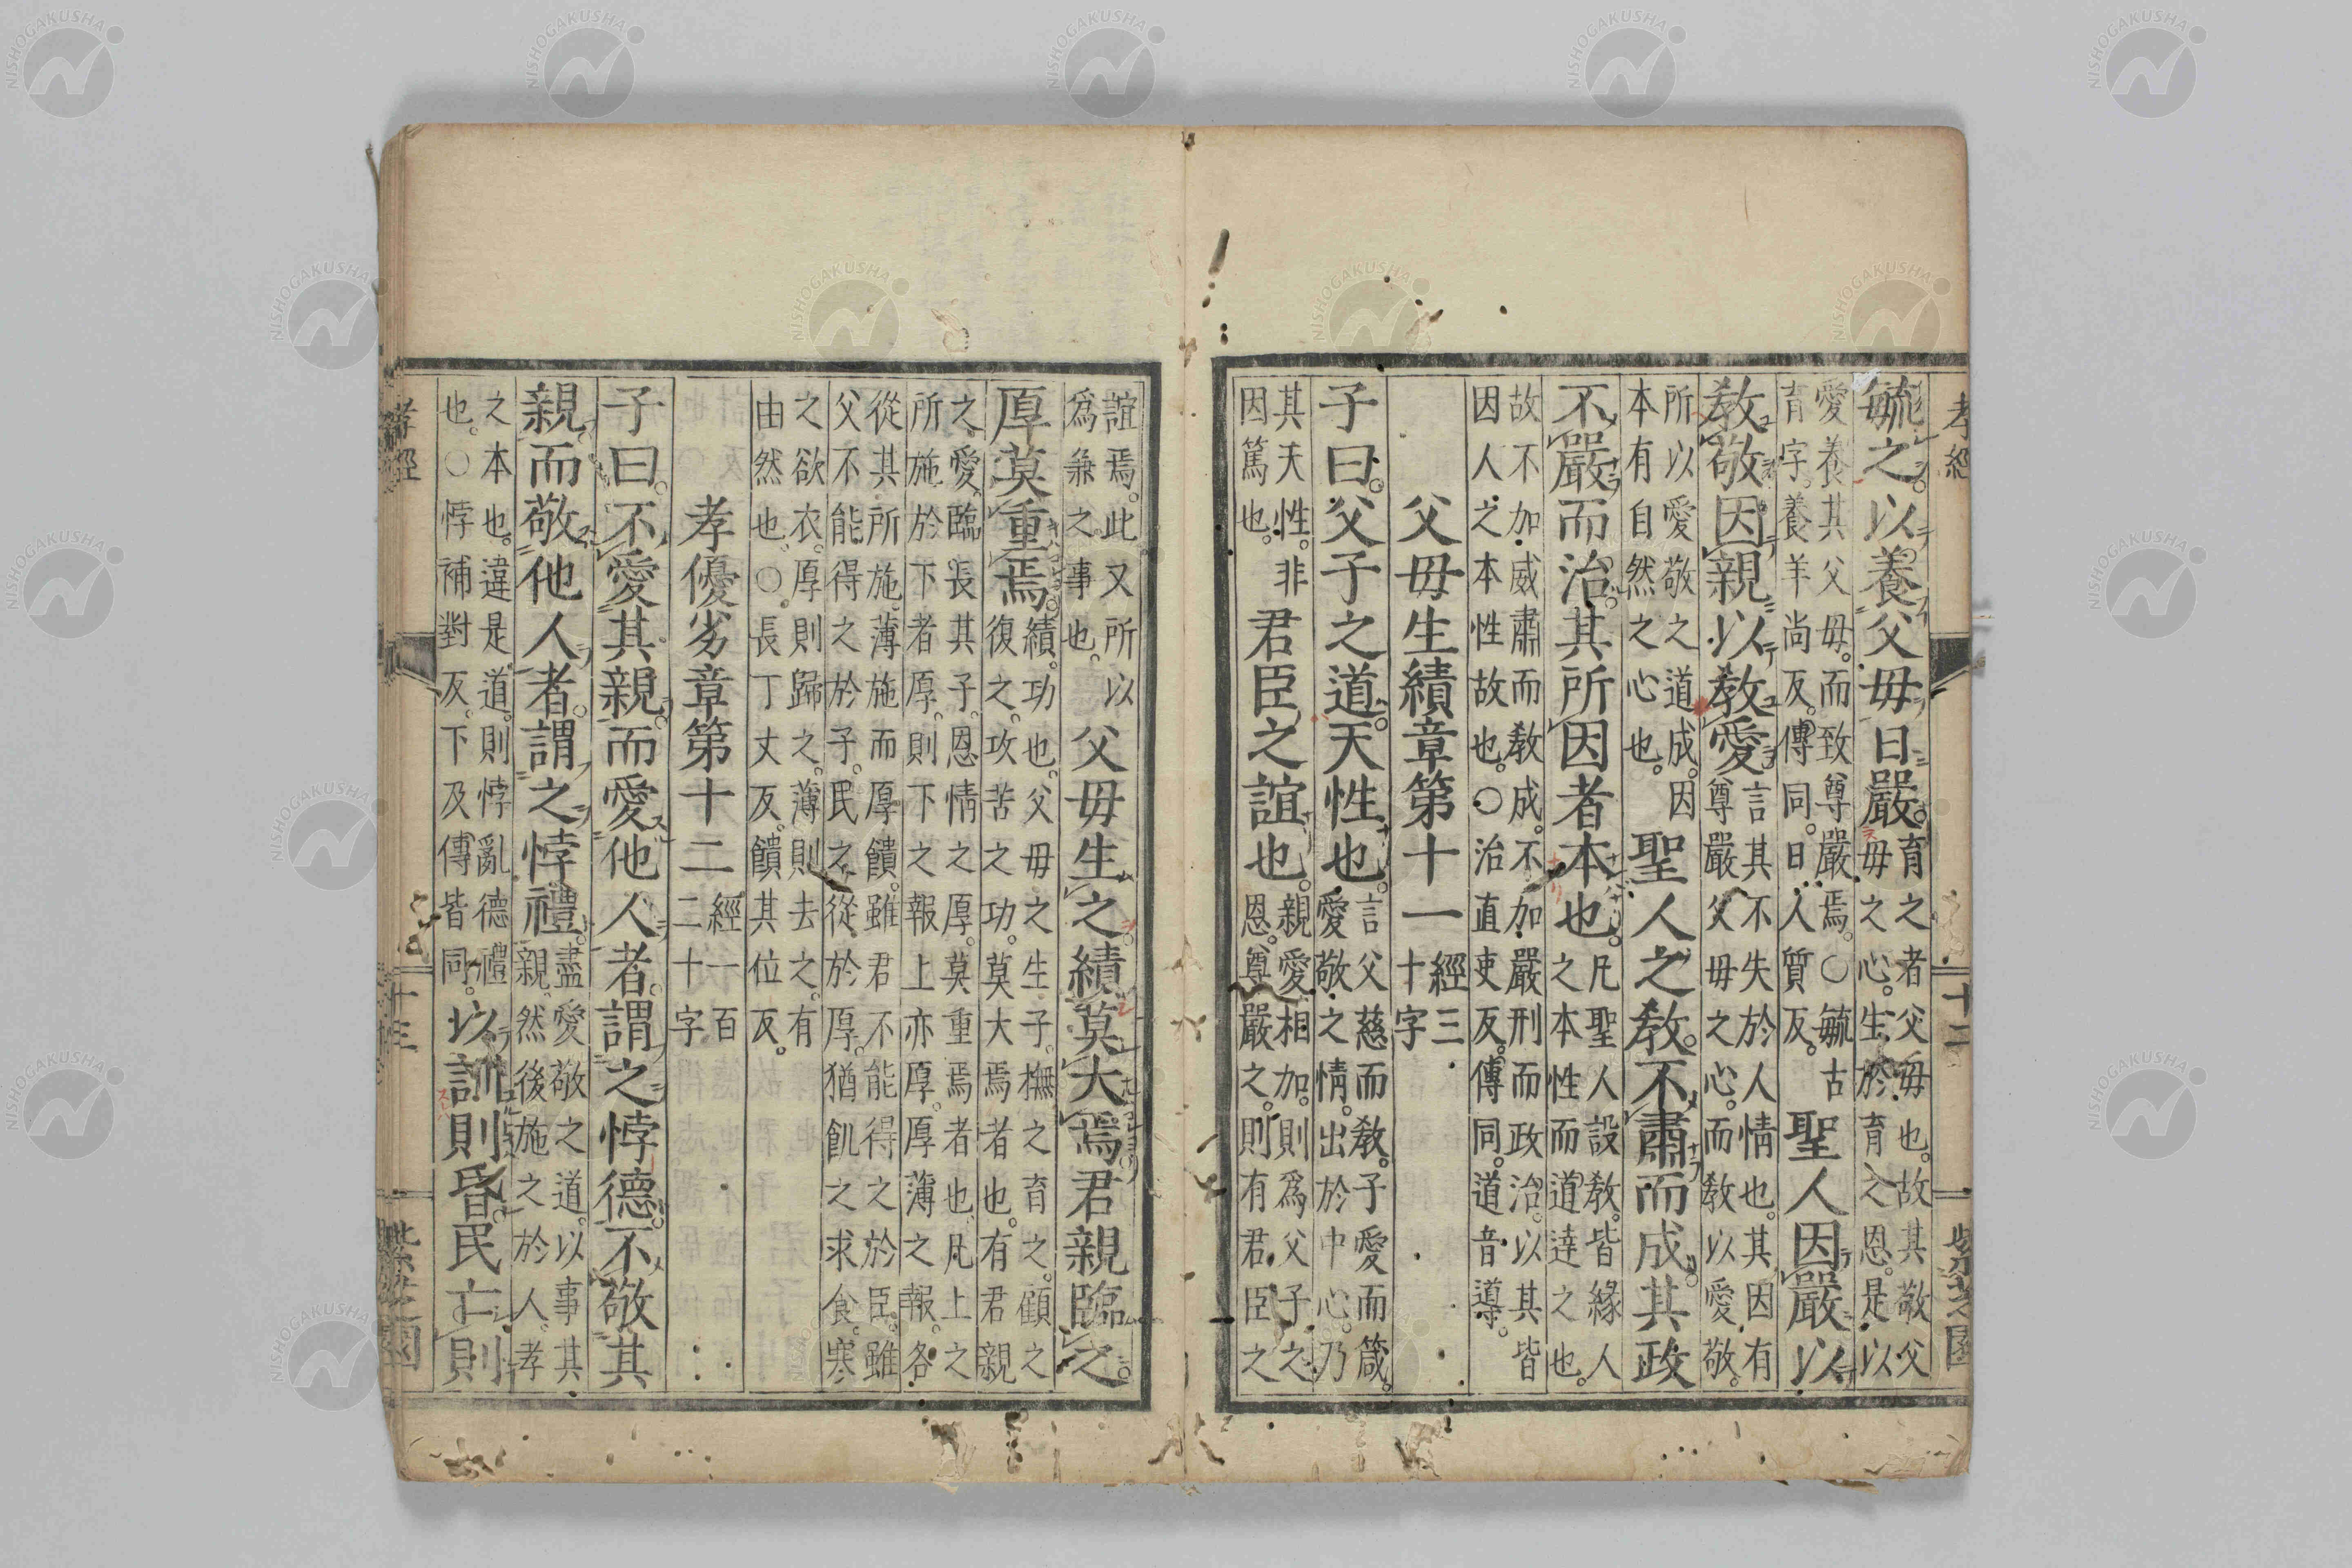 孝經 十二 紫芝園
毓之。以養父毋日嚴。育之者父毋也。故其敬父
毋之心。生於育之恩。是以
愛養其父毋。而致尊嚴焉。○毓古
育字。養羊尚反。傳同。日人質反。
聖人因嚴以
教敬因親以教愛言其不失於人情也。其因有
尊嚴父毋之心。而教以愛敬。
所以愛敬之道成。因
本有自然之心也。
聖人之教。不肅而成。其政
不嚴而治。其所因者本也。凡聖人設教。皆緣人
之本性而道達之也。
故不加威肅而教成。不加嚴刑而政治。以其皆
因人之本性故也。○治直吏反。傳同。道音導。
父毋生績章第十一 經三
十字
子曰。父子之道。天性也。言父慈而教。子愛而箴。
愛敬之情。出於中心。乃
其天性。非
因篤也。
君臣之誼也。親愛相加。則爲父子之
恩。尊嚴之。則有君臣之
誼焉。此又所以
爲兼之事也。
父毋生之績莫大焉君親臨之。
厚莫重焉。績。功也。父毋之生子。撫之育之。顧之
復之。攻苦之功。莫大焉者也。有君親
之愛。臨長其子。恩情之厚。莫重焉者也。凡上之
所施於下者厚。則下之報上亦厚。厚薄之報。各
從其所施。薄施而厚饋。雖君不能得之於臣。雖
父不能得之於子。民之從於厚。猶飢之求食。寒
之欲衣。厚則歸之。薄則去之。有
由然也。○長丁丈反。饋其位反。
孝優劣章第十二 經一百
二十字
子曰。不愛其親。而愛他人者。謂之悖德。不敬其
親而敬他人者。謂之悖禮。盡愛敬之道。以事其
親。然後施之於人。孝
之本也。違是道。則悖亂德禮
也。○悖補對反。下及傳皆同。
以訓則昏。民亡則
孝經 十三 紫芝園